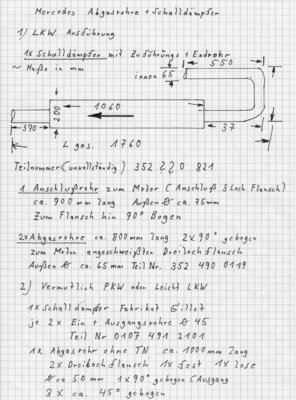 Mercedes Abgasrohre + Schalldämpfer
1) LKW Ausführung
1x Schalldämpfer mit Zuführungs + Endrohr
~ Maße in mm
550
innen 65
200
1060
370
37
L ges. 1760
Teilnummer (unvollständig) 352 ? ? 0 821
1 Anschlußrohr zum Motor (Anschluß 3 Loch Flansch)
ca. 900 mm lang Außen Ø ca. 76mm
Zum Flansch hin 90° Bogen
2x Abgasrohre ca. 800mm lang 2x 90° gebogen
zum Motor angeschweißter Dreilochflansch
Außen Ø ca. 65 mm Teil Nr. 352 490 0119
2) Vermutlich PKW oder Leicht LKW
1x Schalldämpfer Fabrikat Gillet
je 2x Ein + Ausgangsrohre Ø 45
Teil Nr 0107 491 2101
1x Abgasrohr ohne TN ca. 1000mm lang
2x Dreilochflansch 1x fest 1x lose
Ø ca 50 mm 1x 90° gebogen (Ausgang
3x ca. 45° gebogen